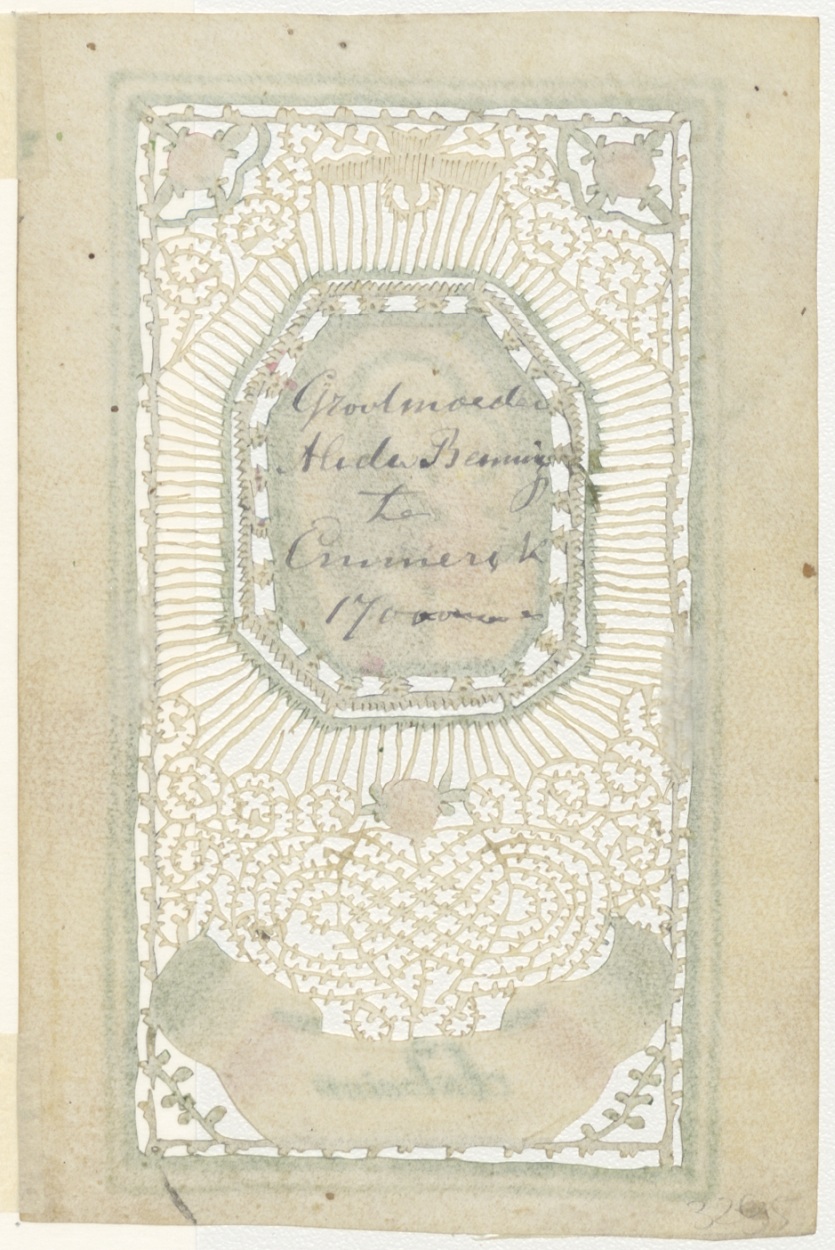 Grootmoeder
Aleida Benning
te
Emmerik
1700